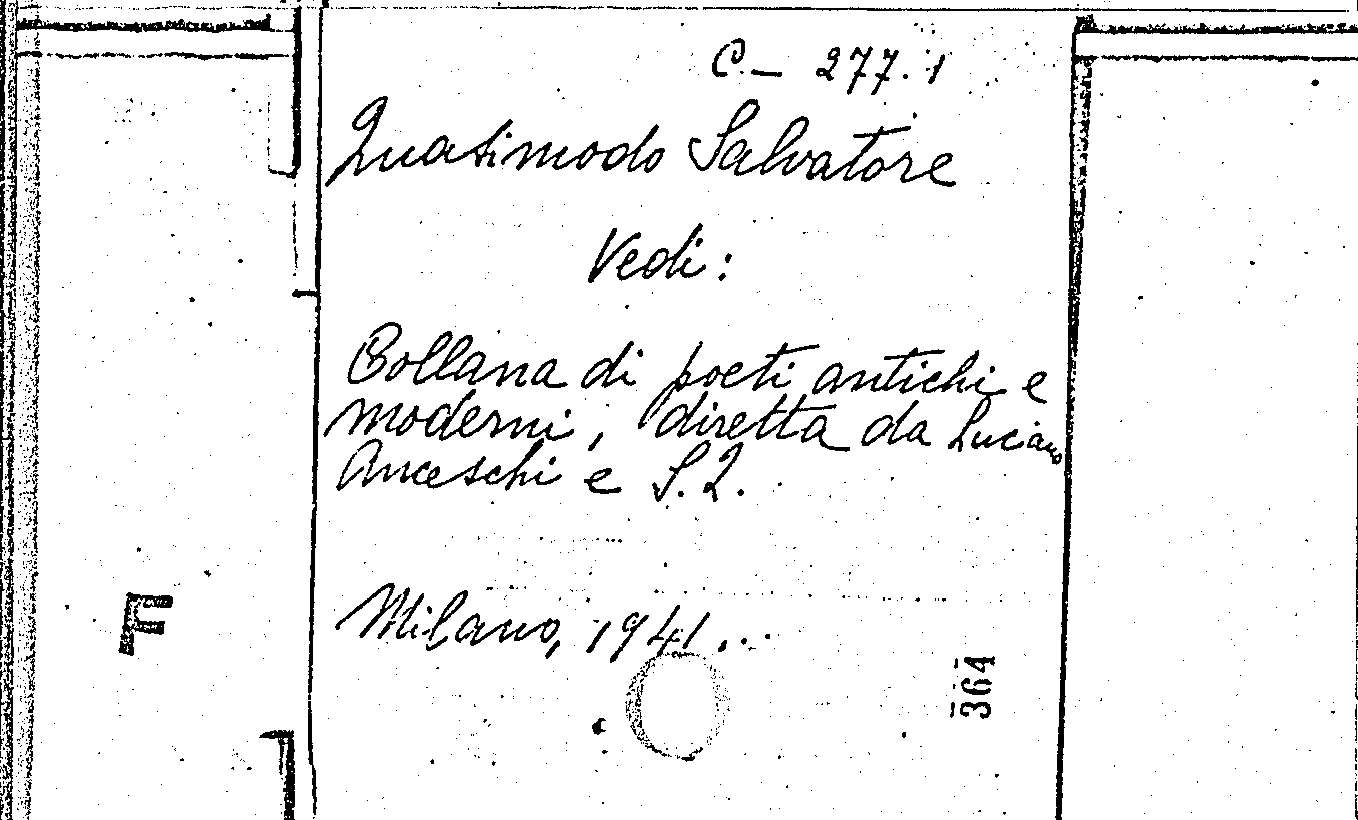 C. — 277. 1
Quasimodo Salvatore
Vedi:
Collana di poeti antichi e
moderni, diretta da Luciano
Anceschi e S. Q.
Milano, 1941...
F
364